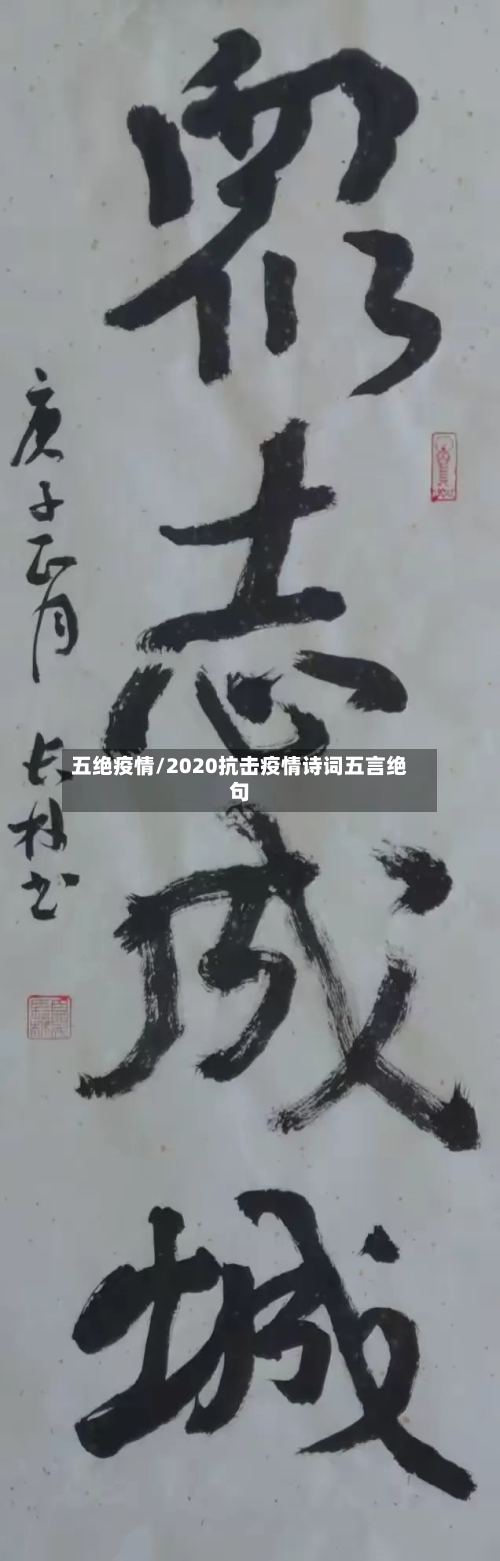 眾志成城
庚子正月 长林书
五绝疫情/2020抗击疫情诗词五言绝
句